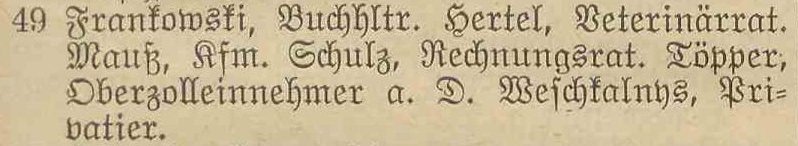 49 Frankowski, Buchhltr. Hertel, Veterinärrat.
Mauß, Kfm. Schulz, Rechnungsrat. Töpper,
Oberzolleinnehmer a. D. Weschkalnys, Pri-
vatier.